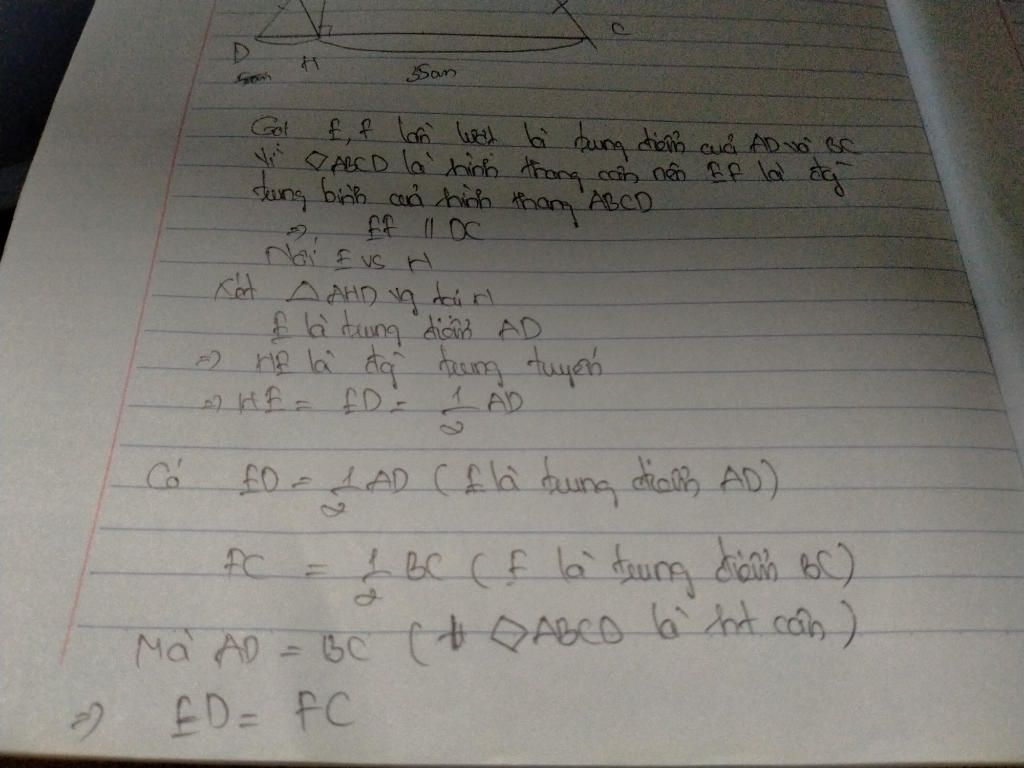 D
H
C
35cm
Gọi E, F lần lượt là trung điểm của AD và BC
Vì ◇ABCD là hình thang cân nên EF là đg
trung bình của hình thang ABCD
⇒ EF // DC
Nối E vs H
Xét △AHD vg tại H
E là trung điểm AD
⇒ HE là đg trung tuyến
⇒ HE = ED = 1/2 AD
Có ED = 1/2 AD ( E là trung điểm AD )
FC = 1/2 BC ( F là trung điểm BC )
Mà AD = BC ( ◇ABCD là ht cân )
⇒ ED = FC